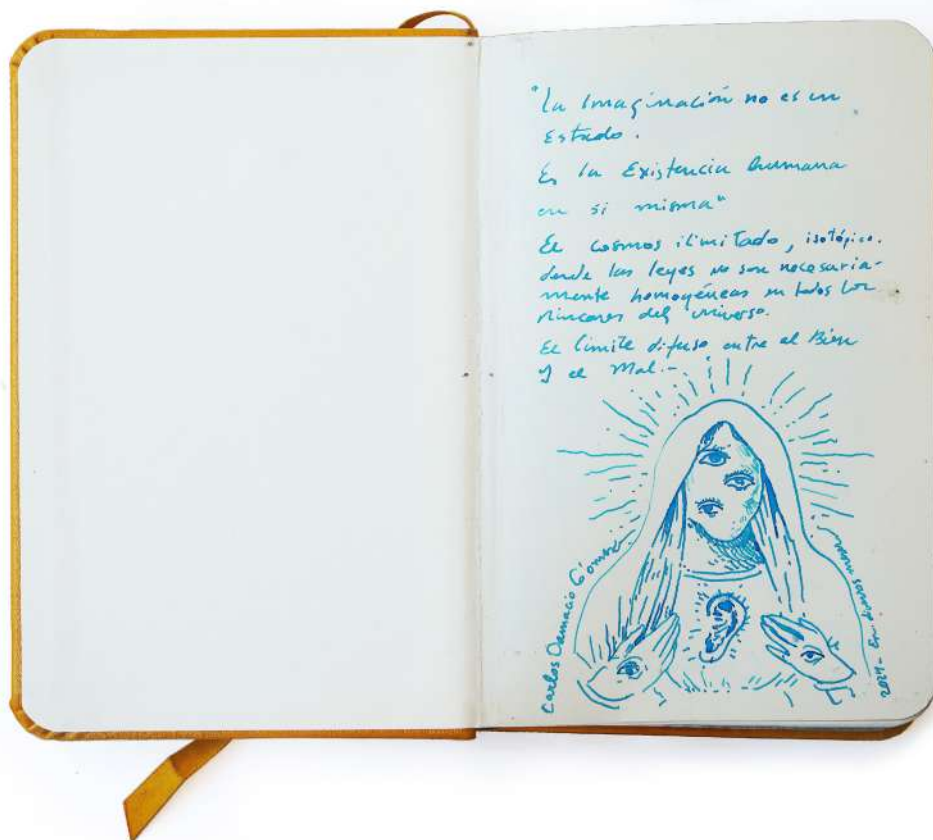 "La Imaginación no es un
Estado.
Es la Existencia humana
en si misma"
El cosmos ilimitado, isotópico.
donde las leyes no son necesaria-
mente homogéneas en todos los
rincones del universo.
El límite difuso entre el Bien
y el Mal.-
Carlos Damacio Gómez
2024